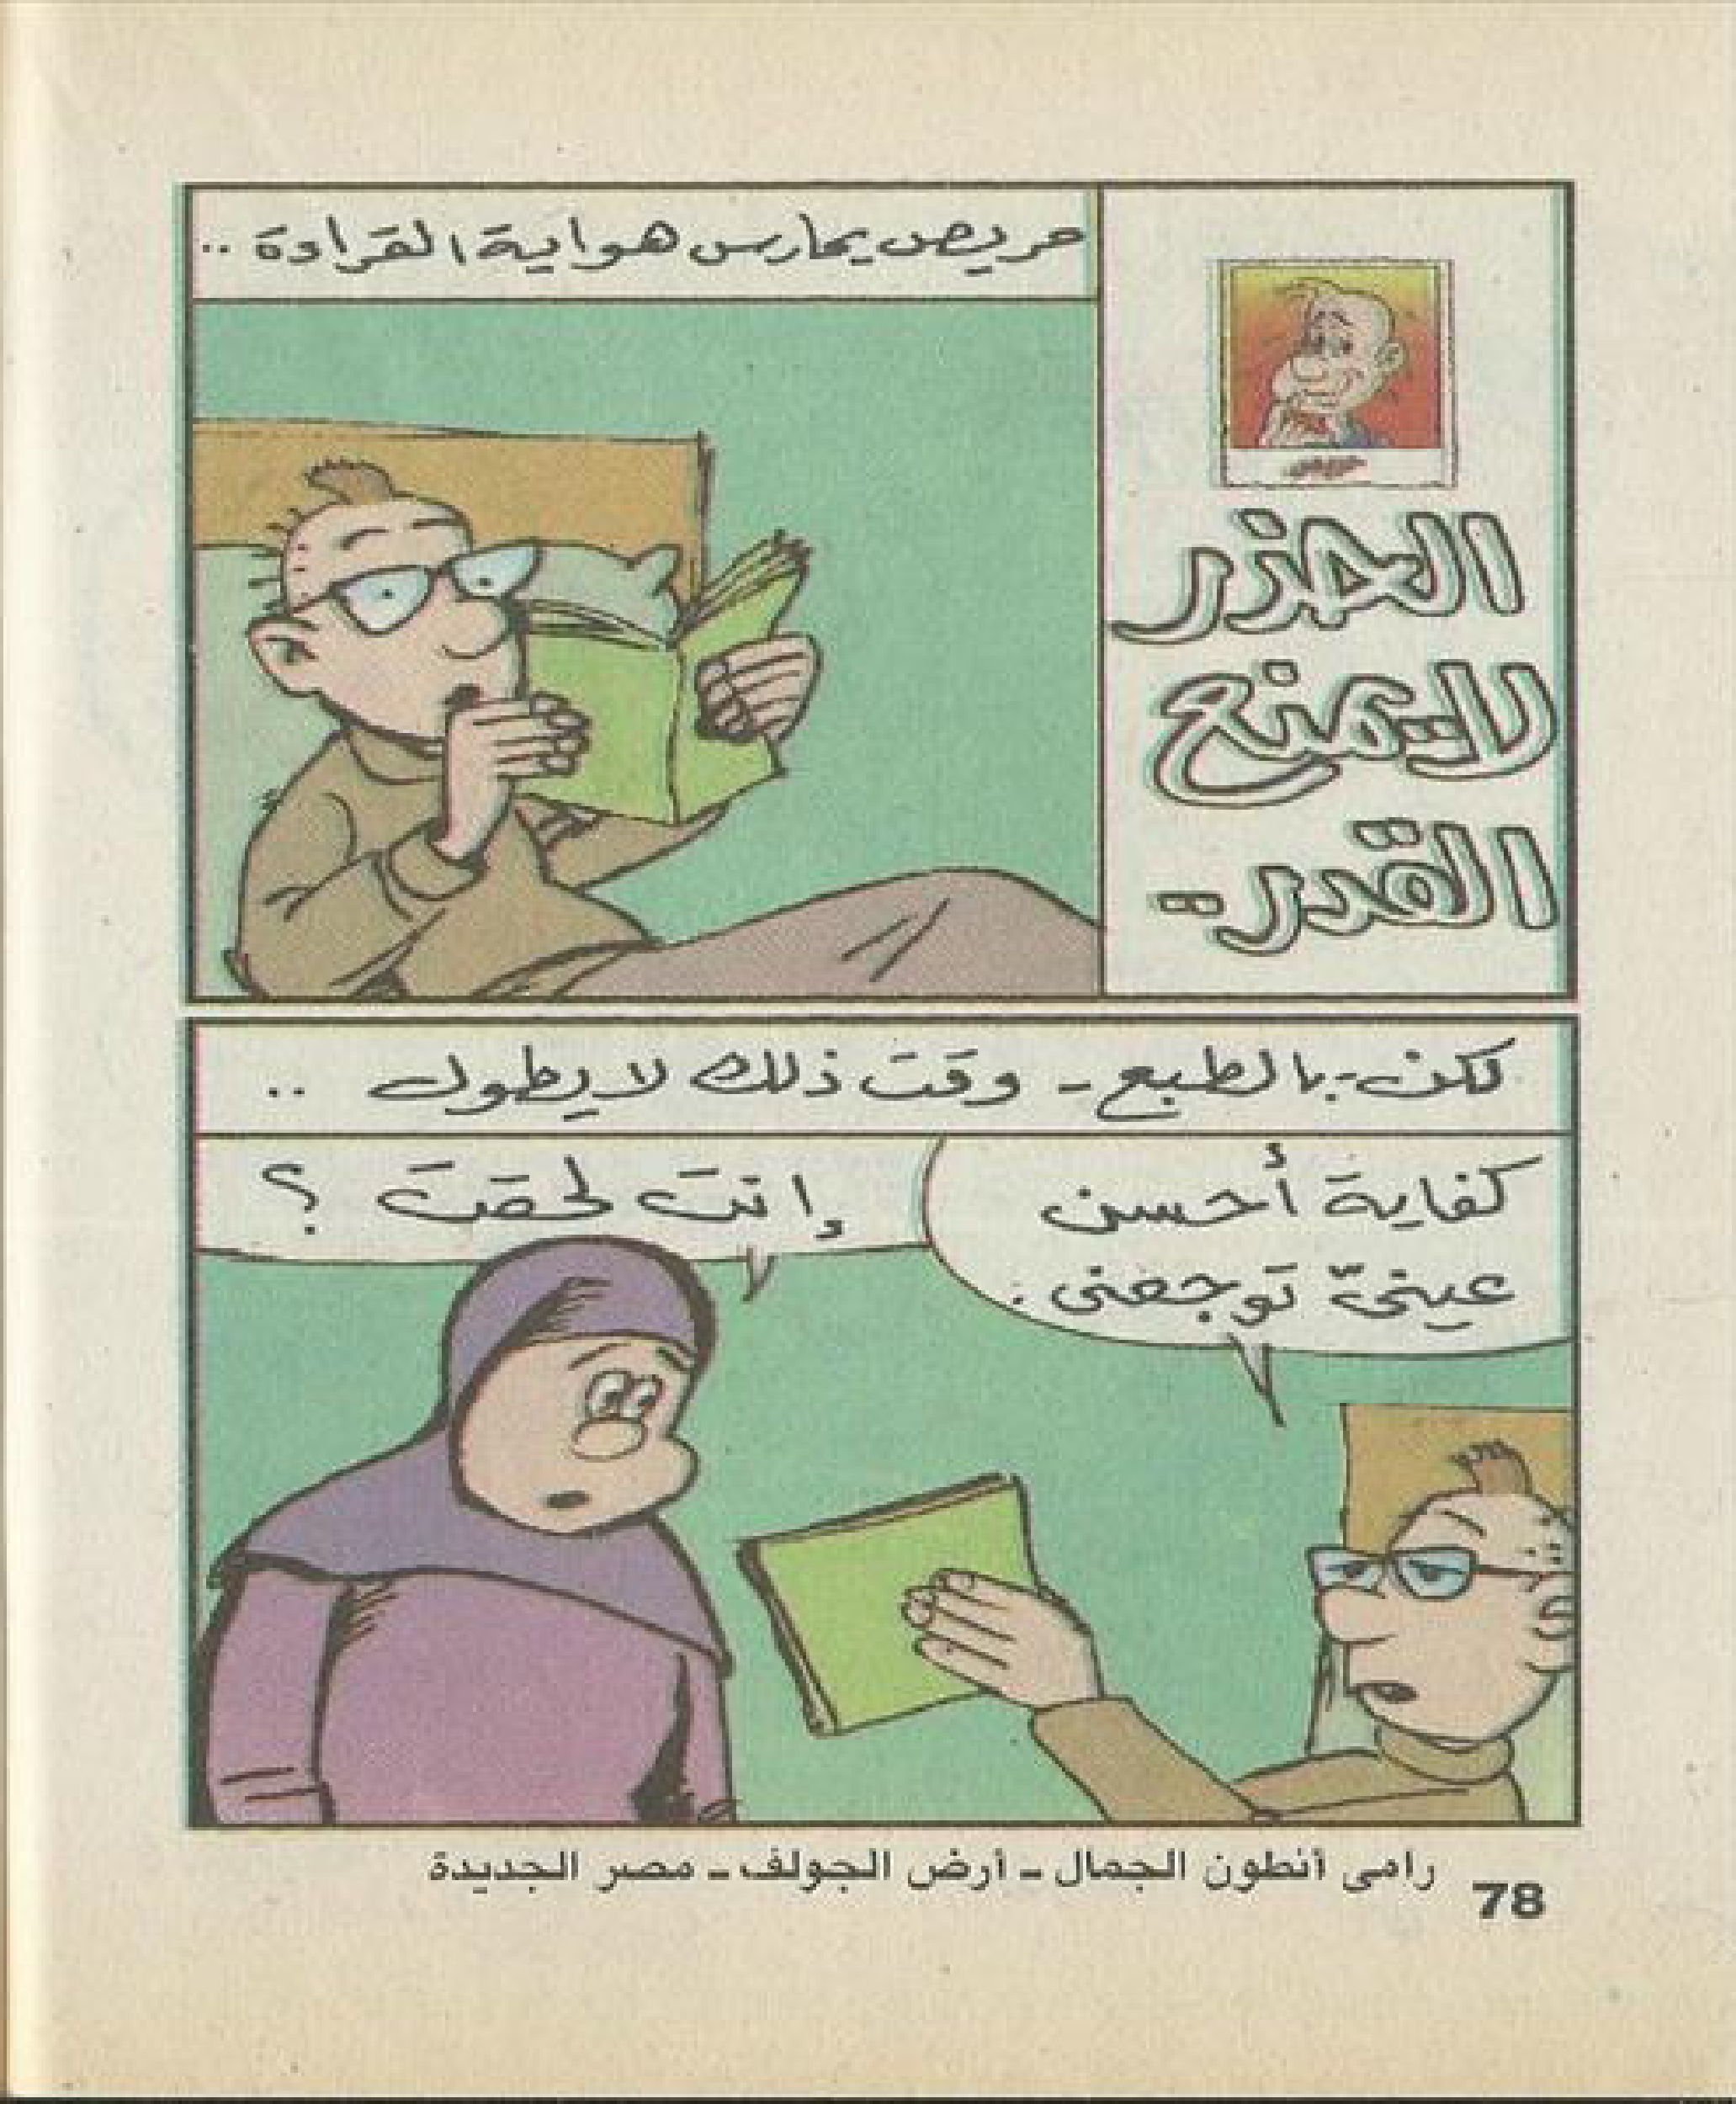 الحذر
لا يمنع
القدر..
حريص يمارس هواية القراءة ..
لكن - بالطبع - وقت ذلك لا يطول ..
كفاية أحسن
عينىّ توجعنى .
إنت لحقت ؟
رامى أنطون الجمال - أرض الجولف - مصر الجديدة
78